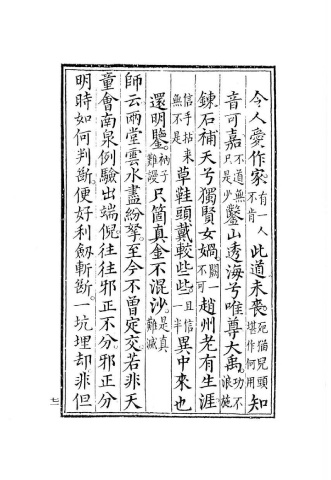 令人愛作家有一人不肯此道未喪死猫兒頭堪作何用知
音可嘉不道無只是少鑿山透海兮唯尊大禹功不浪施
鍊石補天兮獨賢女媧闕一不可趙州老有生涯
信手拈来無不是草鞋頭戴較些些且信一半異中來也
還明鑒衲子難謾只箇真金不混沙是真難滅
師云兩堂雲水盡紛拏至今不曾定交若非天
童會南泉例驗出端倪往往邪正不分邪正分
明時如何判斷便好利劔斬斷一坑埋却非但